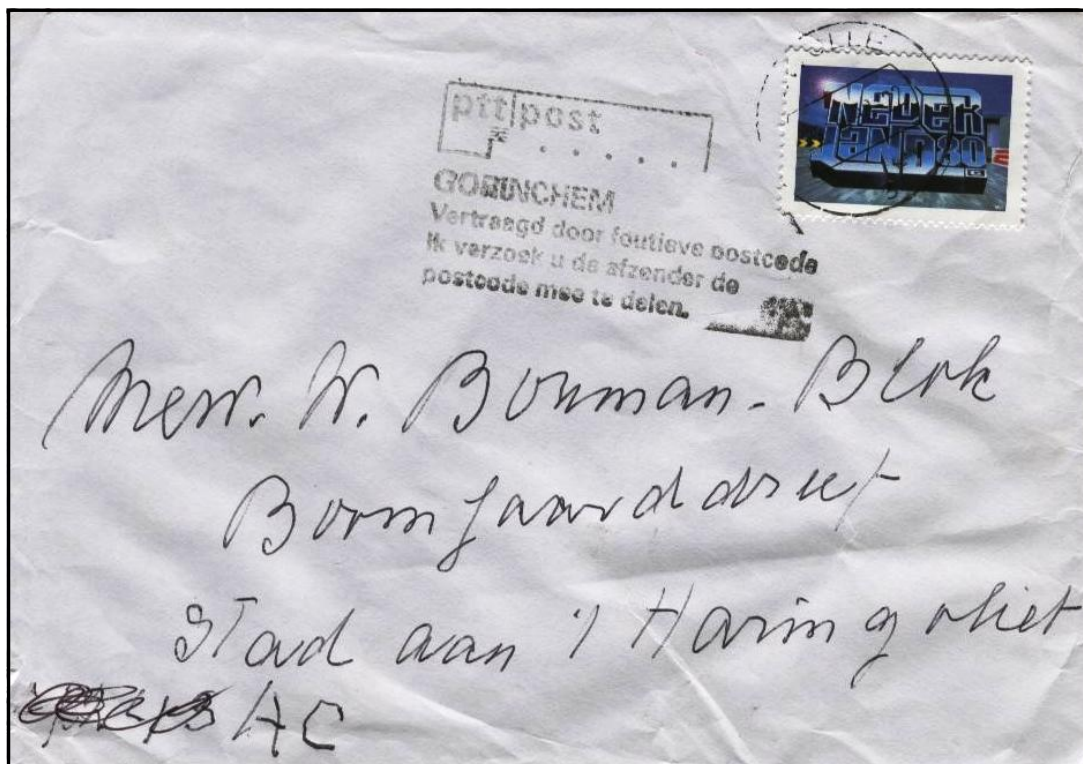 LLE
NEDER
LAND 80
ptt post
GORINCHEM
Vertraagd door foutieve postcode
Ik verzoek u de afzender de
postcode mee te delen.
Mevr. W. Bouman-Blok
Boomgaarddreef
Stad aan 't Haringvliet
AC